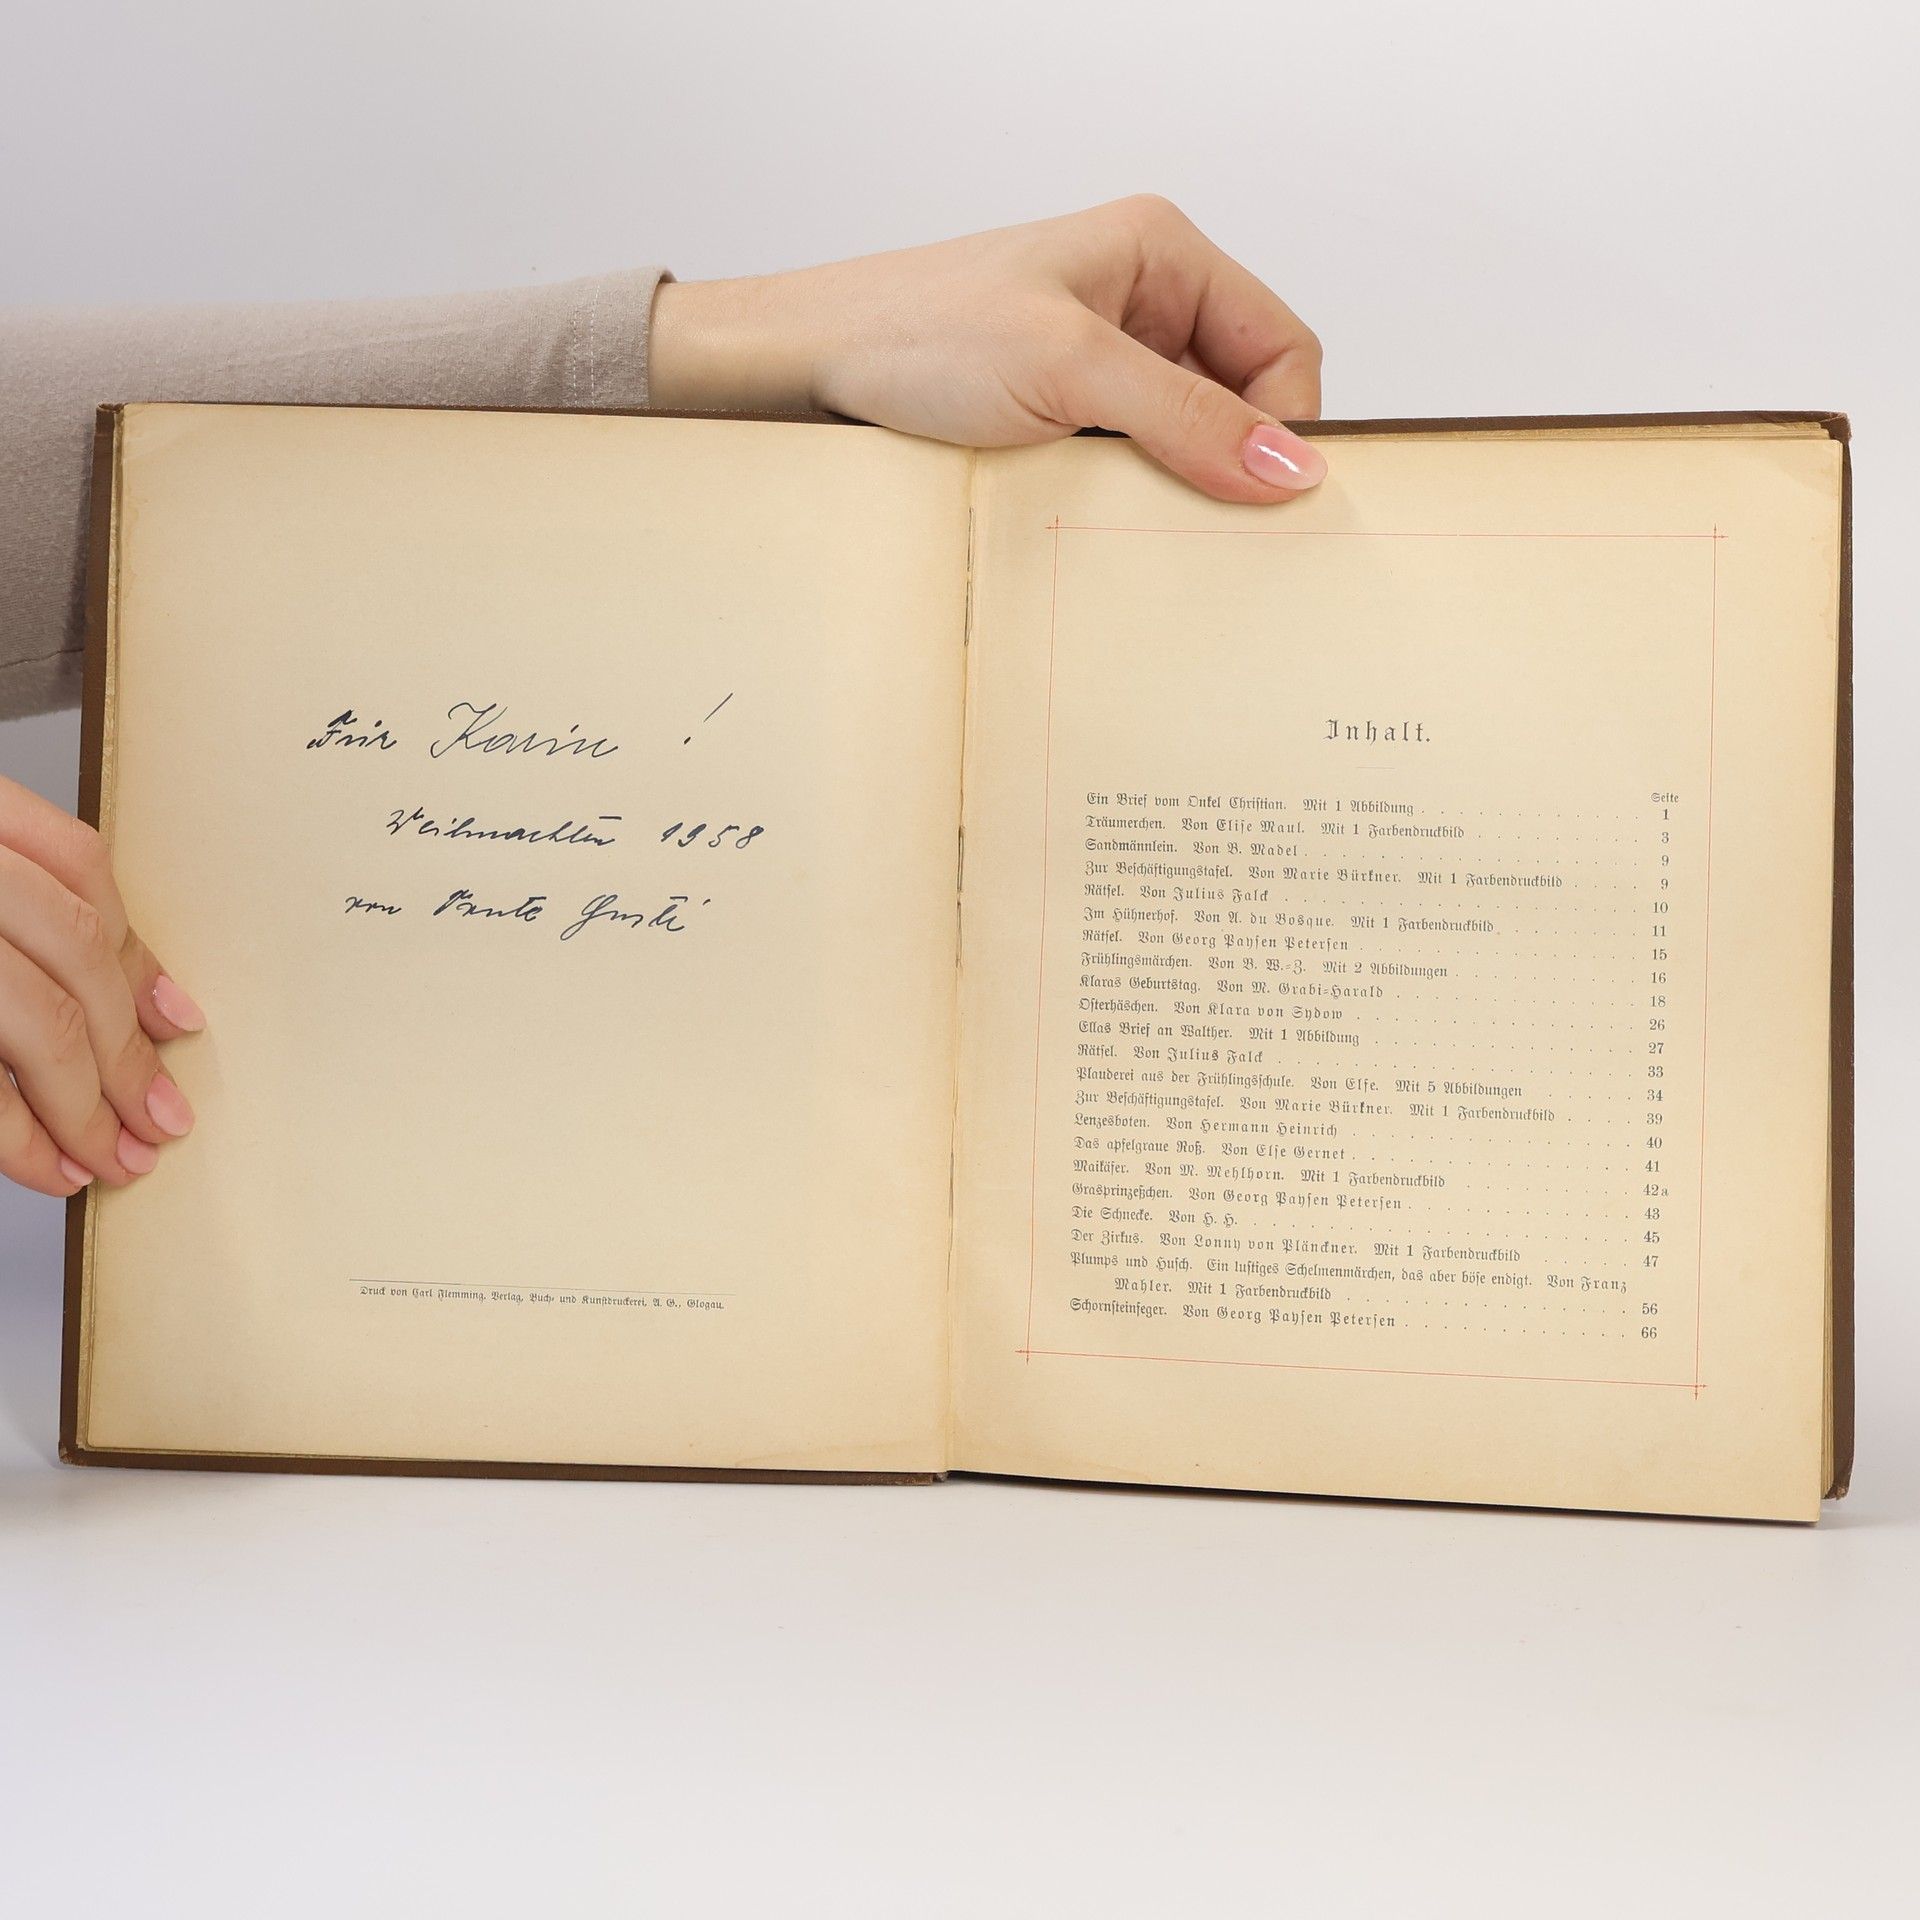 Für Karin !
Weihnachten 1958
von Tante Gusti
Druck von Carl Flemming, Verlag, Buch- und Kunstdruckerei, A. G., Glogau.
Inhalt.
Seite
Ein Brief vom Onkel Christian. Mit 1 Abbildung . . . . . . . . . . . 1
Träumerchen. Von Elise Maul. Mit 1 Farbendruckbild . . . . . . . . . 3
Sandmännlein. Von B. Madel . . . . . . . . . . . . . . . . . 9
Zur Beschäftigungstafel. Von Marie Bürkner. Mit 1 Farbendruckbild . . . . 9
Rätsel. Von Julius Falck . . . . . . . . . . . . . . . . . . 10
Im Hühnerhof. Von A. du Bosque. Mit 1 Farbendruckbild . . . . . . . 11
Rätsel. Von Georg Paysen Petersen . . . . . . . . . . . . . . 15
Frühlingsmärchen. Von B. W.-Z. Mit 2 Abbildungen . . . . . . . . . 16
Klaras Geburtstag. Von M. Grabi-Harald . . . . . . . . . . . . 18
Osterhäschen. Von Klara von Sydow . . . . . . . . . . . . . . 26
Ellas Brief an Walther. Mit 1 Abbildung . . . . . . . . . . . . . 27
Rätsel. Von Julius Falck . . . . . . . . . . . . . . . . . . 33
Plauderei aus der Frühlingsschule. Von Else. Mit 5 Abbildungen . . . . . 34
Zur Beschäftigungstafel. Von Marie Bürkner. Mit 1 Farbendruckbild . . . . 39
Lenzesboten. Von Hermann Heinrich . . . . . . . . . . . . . . 40
Das apfelgraue Roß. Von Else Gernet . . . . . . . . . . . . . . 41
Maikäfer. Von M. Mehlhorn. Mit 1 Farbendruckbild . . . . . . . . . 42a
Grasprinzeßchen. Von Georg Paysen Petersen . . . . . . . . . . . 43
Die Schnecke. Von H. H. . . . . . . . . . . . . . . . . . . . 45
Der Zirkus. Von Lonny von Plänckner. Mit 1 Farbendruckbild . . . . . 47
Plumps und Husch. Ein lustiges Schelmenmärchen, das aber böse endigt. Von Franz
Mahler. Mit 1 Farbendruckbild . . . . . . . . . . . . . . . 56
Schornsteinfeger. Von Georg Paysen Petersen . . . . . . . . . . . 66